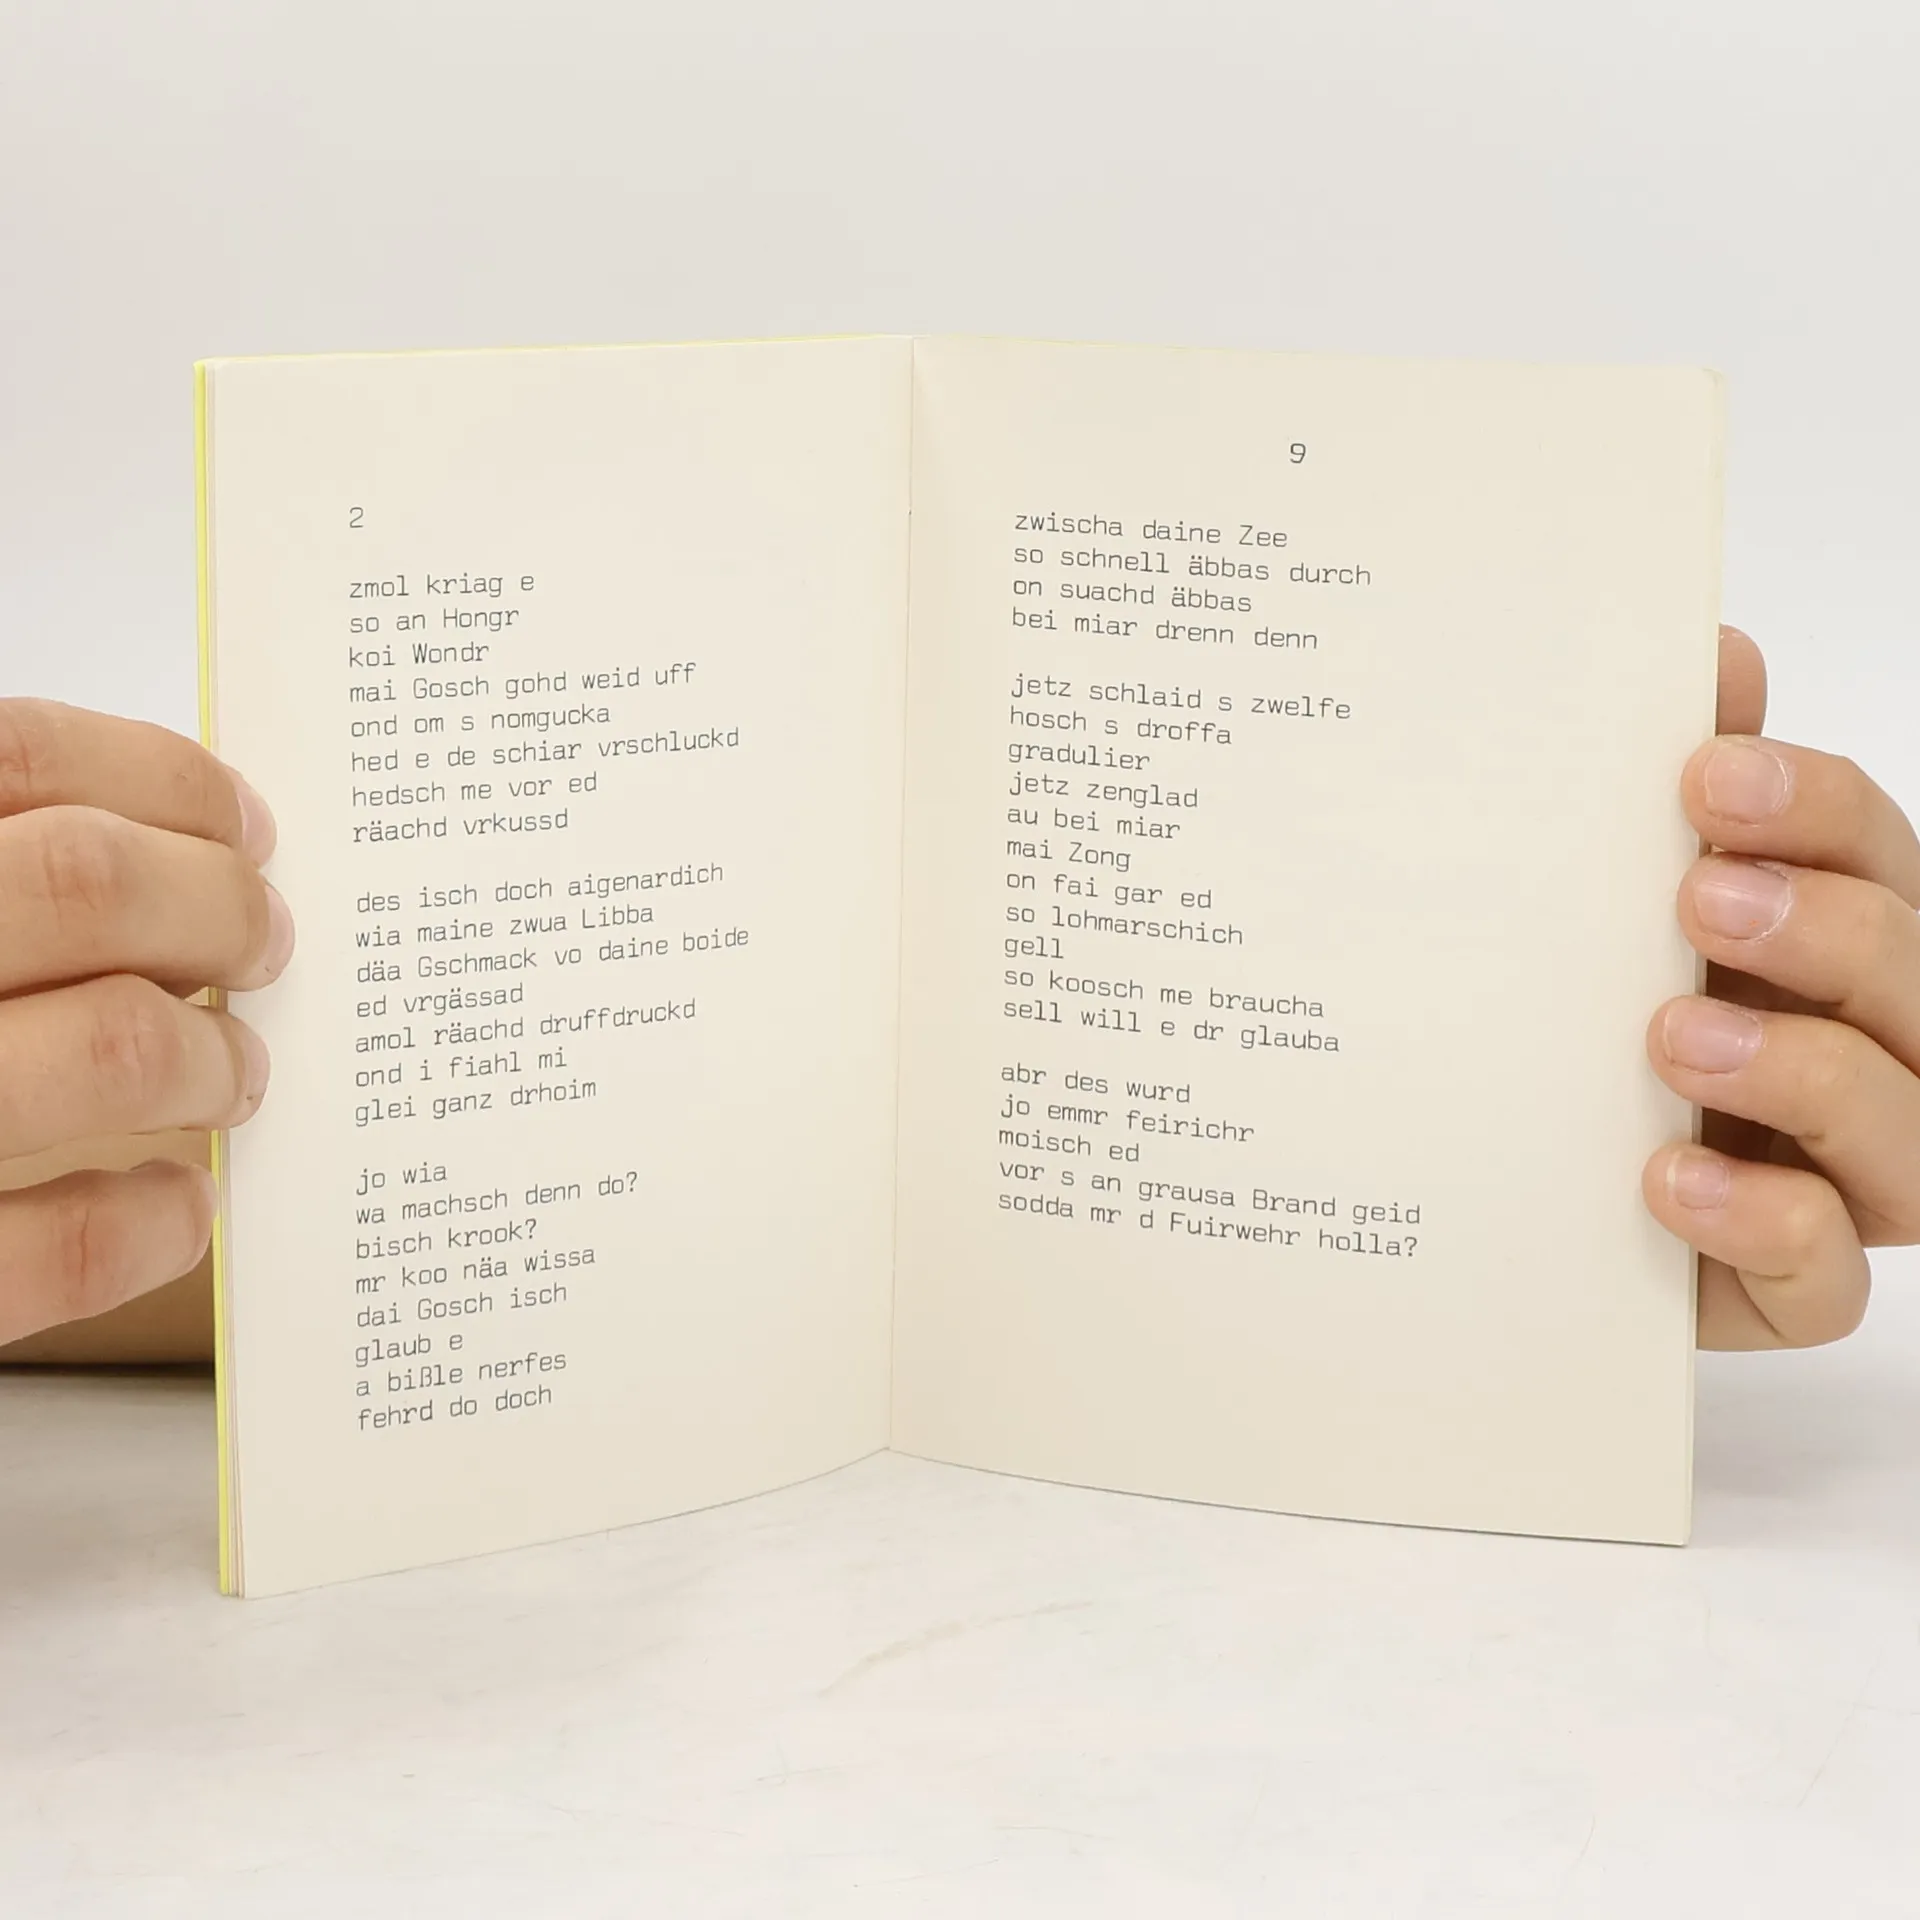 2
zmol kriag e
so an Hongr
koi Wondr
mai Gosch gohd weid uff
ond om s nomgucka
hed e de schiar vrschluckd
hedsch me vor ed
räachd vrkussd
des isch doch aigenardich
wia maine zwua Libba
däa Gschmack vo daine boide
ed vrgässad
amol räachd druffdruckd
ond i fiahl mi
glei ganz drhoim
jo wia
wa machsch denn do?
bisch krook?
mr koo näa wissa
dai Gosch isch
glaub e
a bißle nerfes
fehrd do doch
9
zwischa daine Zee
so schnell äbbas durch
on suachd äbbas
bei miar drenn denn
jetz schlaid s zwelfe
hosch s droffa
gradulier
jetz zenglad
au bei miar
mai Zong
on fai gar ed
so lohmarschich
gell
so koosch me braucha
sell will e dr glauba
abr des wurd
jo emmr feirichr
moisch ed
vor s an grausa Brand geid
sodda mr d Fuirwehr holla?